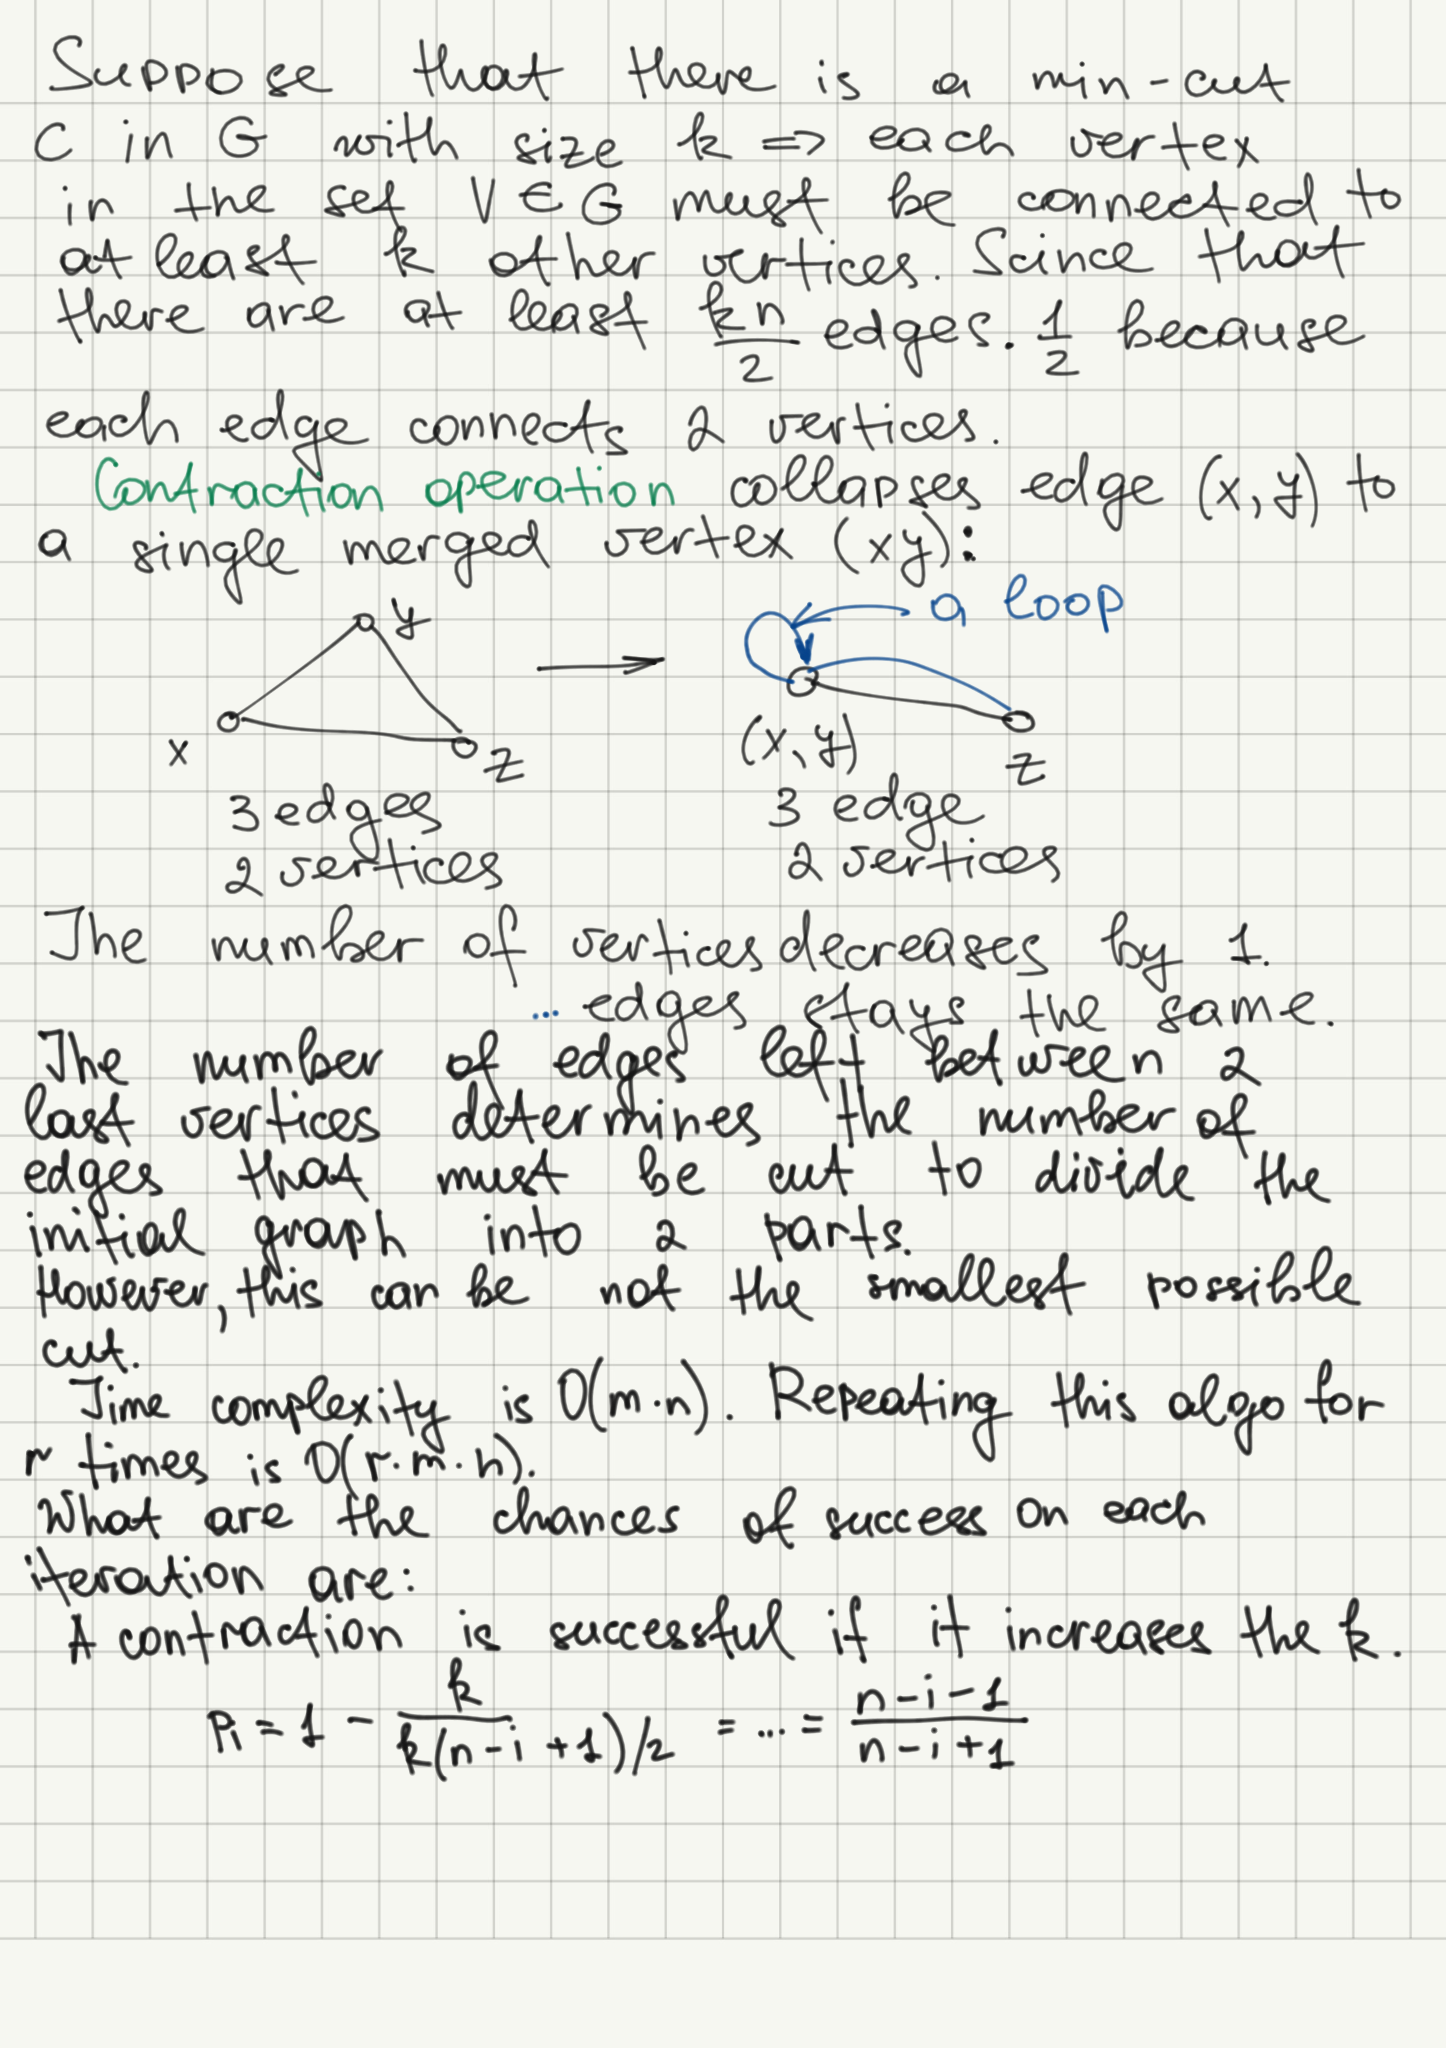 Suppose that there is a min-cut
C in G with size k => each vertex
in the set V ∈ G must be connected to
at least k other vertices. Scince that
there are at least kn/2 edges. 1/2 because
each edge connects 2 vertices.
Contraction operation collapses edge (x, y) to
a single merged vertex (xy):
a loop
y
x
z
(x, y)
z
3 edges
3 edge
2 vertices
2 vertices
The number of vertices decreases by 1.
... edges stays the same.
The number of edges left between 2
last vertices determines the number of
edges that must be cut to divide the
initial graph into 2 parts.
However, this can be not the smallest possible
cut.
Time complexity is O(m·n). Repeating this algo for
r times is O(r·m·n).
What are the chances of success on each
iteration are:
A contraction is successful if it increases the k.
Pi = 1 - k/(k(n-i+1)/2) = ... = (n-i-1)/(n-i+1)